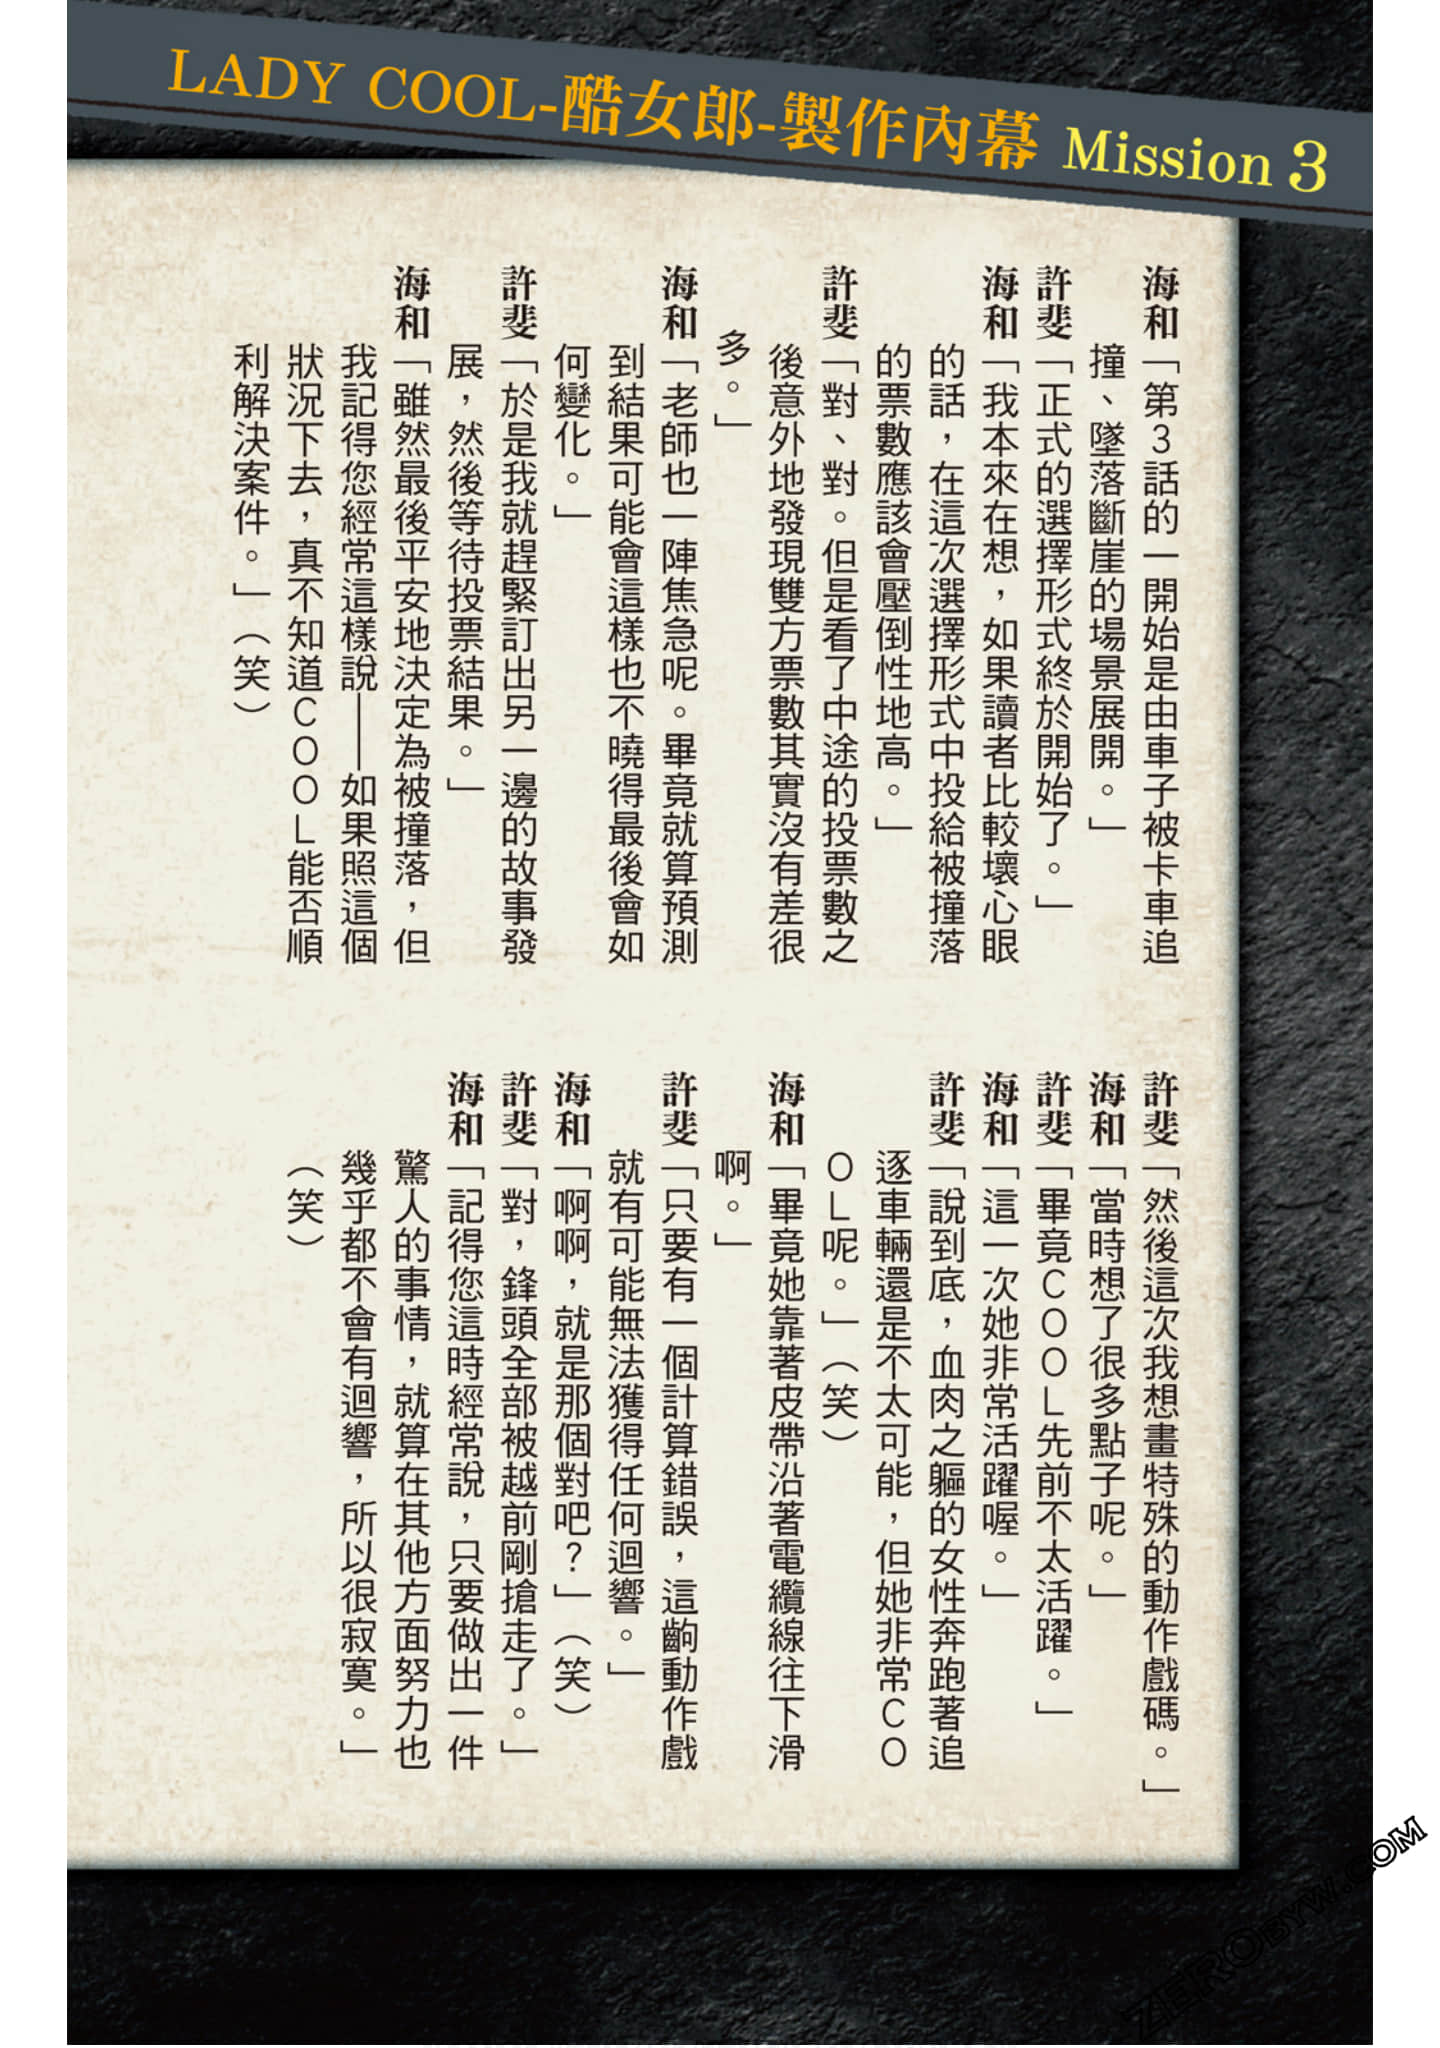 LADY COOL-酷女郎-製作內幕 Mission 3
海和「第3話的一開始是由車子被卡車追
撞、墜落斷崖的場景展開。」
許斐「正式的選擇形式終於開始了。」
海和「我本來在想，如果讀者比較壞心眼
的話，在這次選擇形式中投給被撞落
的票數應該會壓倒性地高。」
許斐「對、對。但是看了中途的投票數之
後意外地發現雙方票數其實沒有差很
多。」
海和「老師也一陣焦急呢。畢竟就算預測
到結果可能會這樣也不曉得最後會如
何變化。」
許斐「於是我就趕緊訂出另一邊的故事發
展，然後等待投票結果。」
海和「雖然最後平安地決定為被撞落，但
我記得您經常這樣說——如果照這個
狀況下去，真不知道COOL能否順
利解決案件。」（笑）
許斐「然後這次我想畫特殊的動作戲碼。」
海和「當時想了很多點子呢。」
許斐「畢竟COOL先前不太活躍。」
海和「這一次她非常活躍喔。」
許斐「說到底，血肉之軀的女性奔跑著追
逐車輛還是不太可能，但她非常CO
OL呢。」（笑）
海和「畢竟她靠著皮帶沿著電纜線往下滑
啊。」
許斐「只要有一個計算錯誤，這齣動作戲
就有可能無法獲得任何迴響。」
海和「啊啊，就是那個對吧？」（笑）
許斐「對，鋒頭全部被越前剛搶走了。」
海和「記得您這時經常說，只要做出一件
驚人的事情，就算在其他方面努力也
幾乎都不會有迴響，所以很寂寞。」
（笑）
ZEROBYW.COM